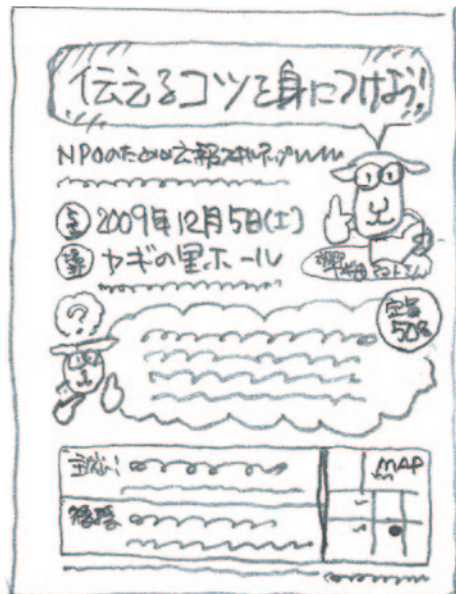 伝えるコツを身につけよう!
NPOのための広報スキルアップ
2009年12月5日(土)
会場 ヤギの里ホール
?
定員
50名
主催
MAP
後援